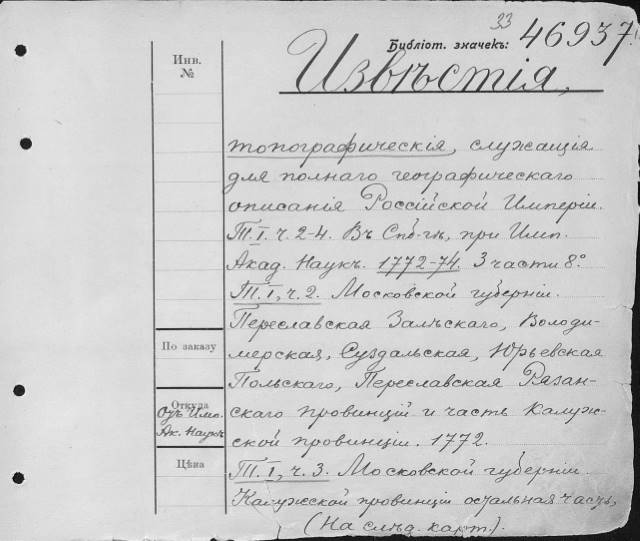 33
Библіот. значекъ: 46937.
Извѣстія,
Инв.
№
топографическія, служащія
для полнаго географическаго
описанія Россійской Имперіи.
Т. I. ч. 2-4. Въ Спб-гѣ, при Имп.
Акад. Наукъ. 1772-74. 3 части 8º
Т. I, ч. 2. Московской губерніи.
Переславская Залѣскаго, Володи-
мерская, Суздальская, Юрьевская
По заказу
Польскаго, Переславская Рязан-
скаго провинцій и часть Калуж-
ской провинціи. 1772.
Откуда
Отъ Имп.
Ак. Наукъ
Цѣна
Т. I, ч. 3. Московской губерніи.
Калужской провинціи остальная часть,
(На слѣд. карт.).